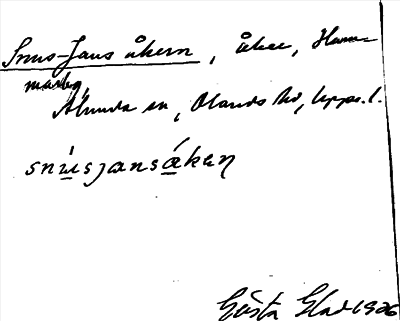 Snus-Jans åkern, åker, Hammarby,
Alunda sn, Olands hd, Upps. l.
snúsjansákaη
Gösta Glad 1926